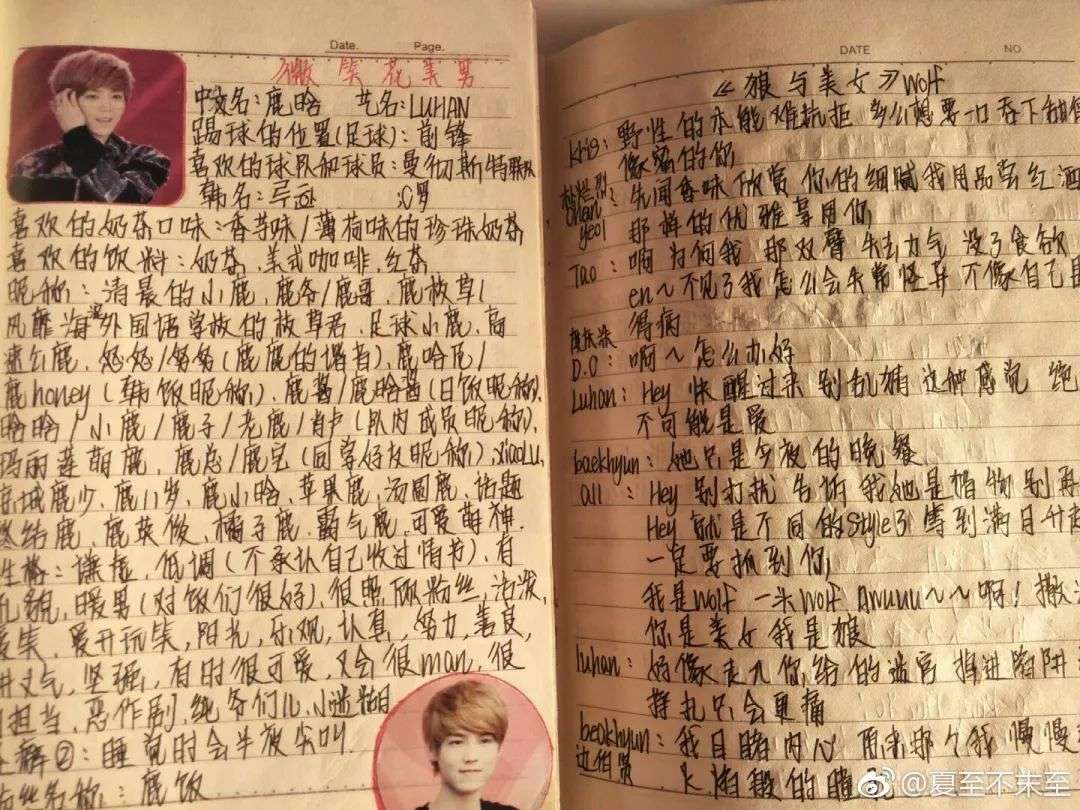 Date. Page.
微笑花美男
中文名：鹿晗 艺名：LUHAN
踢球的位置(足球)：前锋
喜欢的球队和球员：曼彻斯特联队
韩名： :C罗
喜欢的奶茶口味：香芋味/薄荷味的珍珠奶茶
喜欢的饮料：奶茶、美式咖啡、红茶
昵称：清晨的小鹿、鹿爷/鹿哥、鹿校草/
风靡海淀外国语学校的校草君、足球小鹿、高
速公鹿、怒怒/努努(鹿鹿的谐音)、鹿哈尼/
鹿honey(韩饭昵称)、鹿酱/鹿晗酱(日饭昵称)、
晗晗/小鹿/鹿子/老鹿/肖卢(队内成员昵称)、
玛丽莲萌鹿、鹿总/鹿宝(同学好友昵称)、xiaoLu、
鹿少、鹿八岁、鹿小哈、苹果鹿、汤圆鹿、话题
终结鹿、鹿英俊、橘子鹿、霸气鹿、可爱萌神、
性格：谦虚、低调(不承认自己收过情书)、有
礼貌、暖男(对饭们很好)、很照顾粉丝、活泼、
爱笑、爱开玩笑、阳光、乐观、认真、努力、善良、
讲义气、坚强、有时很可爱、又会很man、很
担当、恶作剧、纯爷们儿、小迷糊
癖②：睡觉时会半夜尖叫、
名称：鹿饭
DATE NO
《狼与美女》Wolf
kris：野性的本能难抗拒 多么想要一口吞下甜
像窝的你
朴灿烈 chan yeol 先闻香味欣赏 你的细腻我用品尝红酒
那样的优雅享用你
Tao：啊 为何我 那双臂 失去力气 没了食欲
en～不见了我 怎么会失常怪异 不像自己
得病
D.O：啊～怎么办好
Luhan：Hey 快醒过来 别乱猜 这种感觉 绝
不可能是爱
baekhyun：她只是今夜的晚餐
all：Hey 别打扰 告诉我她是猎物别再
Hey 就是不同的Style了 等到满月升起
一定要抓到你
我是Wolf 一米Wolf Awuuu～～啊！撒
你是美女我是狼
luhan：好像走入你给的迷宫 掉进陷阱
挣扎只会更痛
beokhyun：我目睹内心 原来那个我 慢慢
边伯贤
@夏至不未至